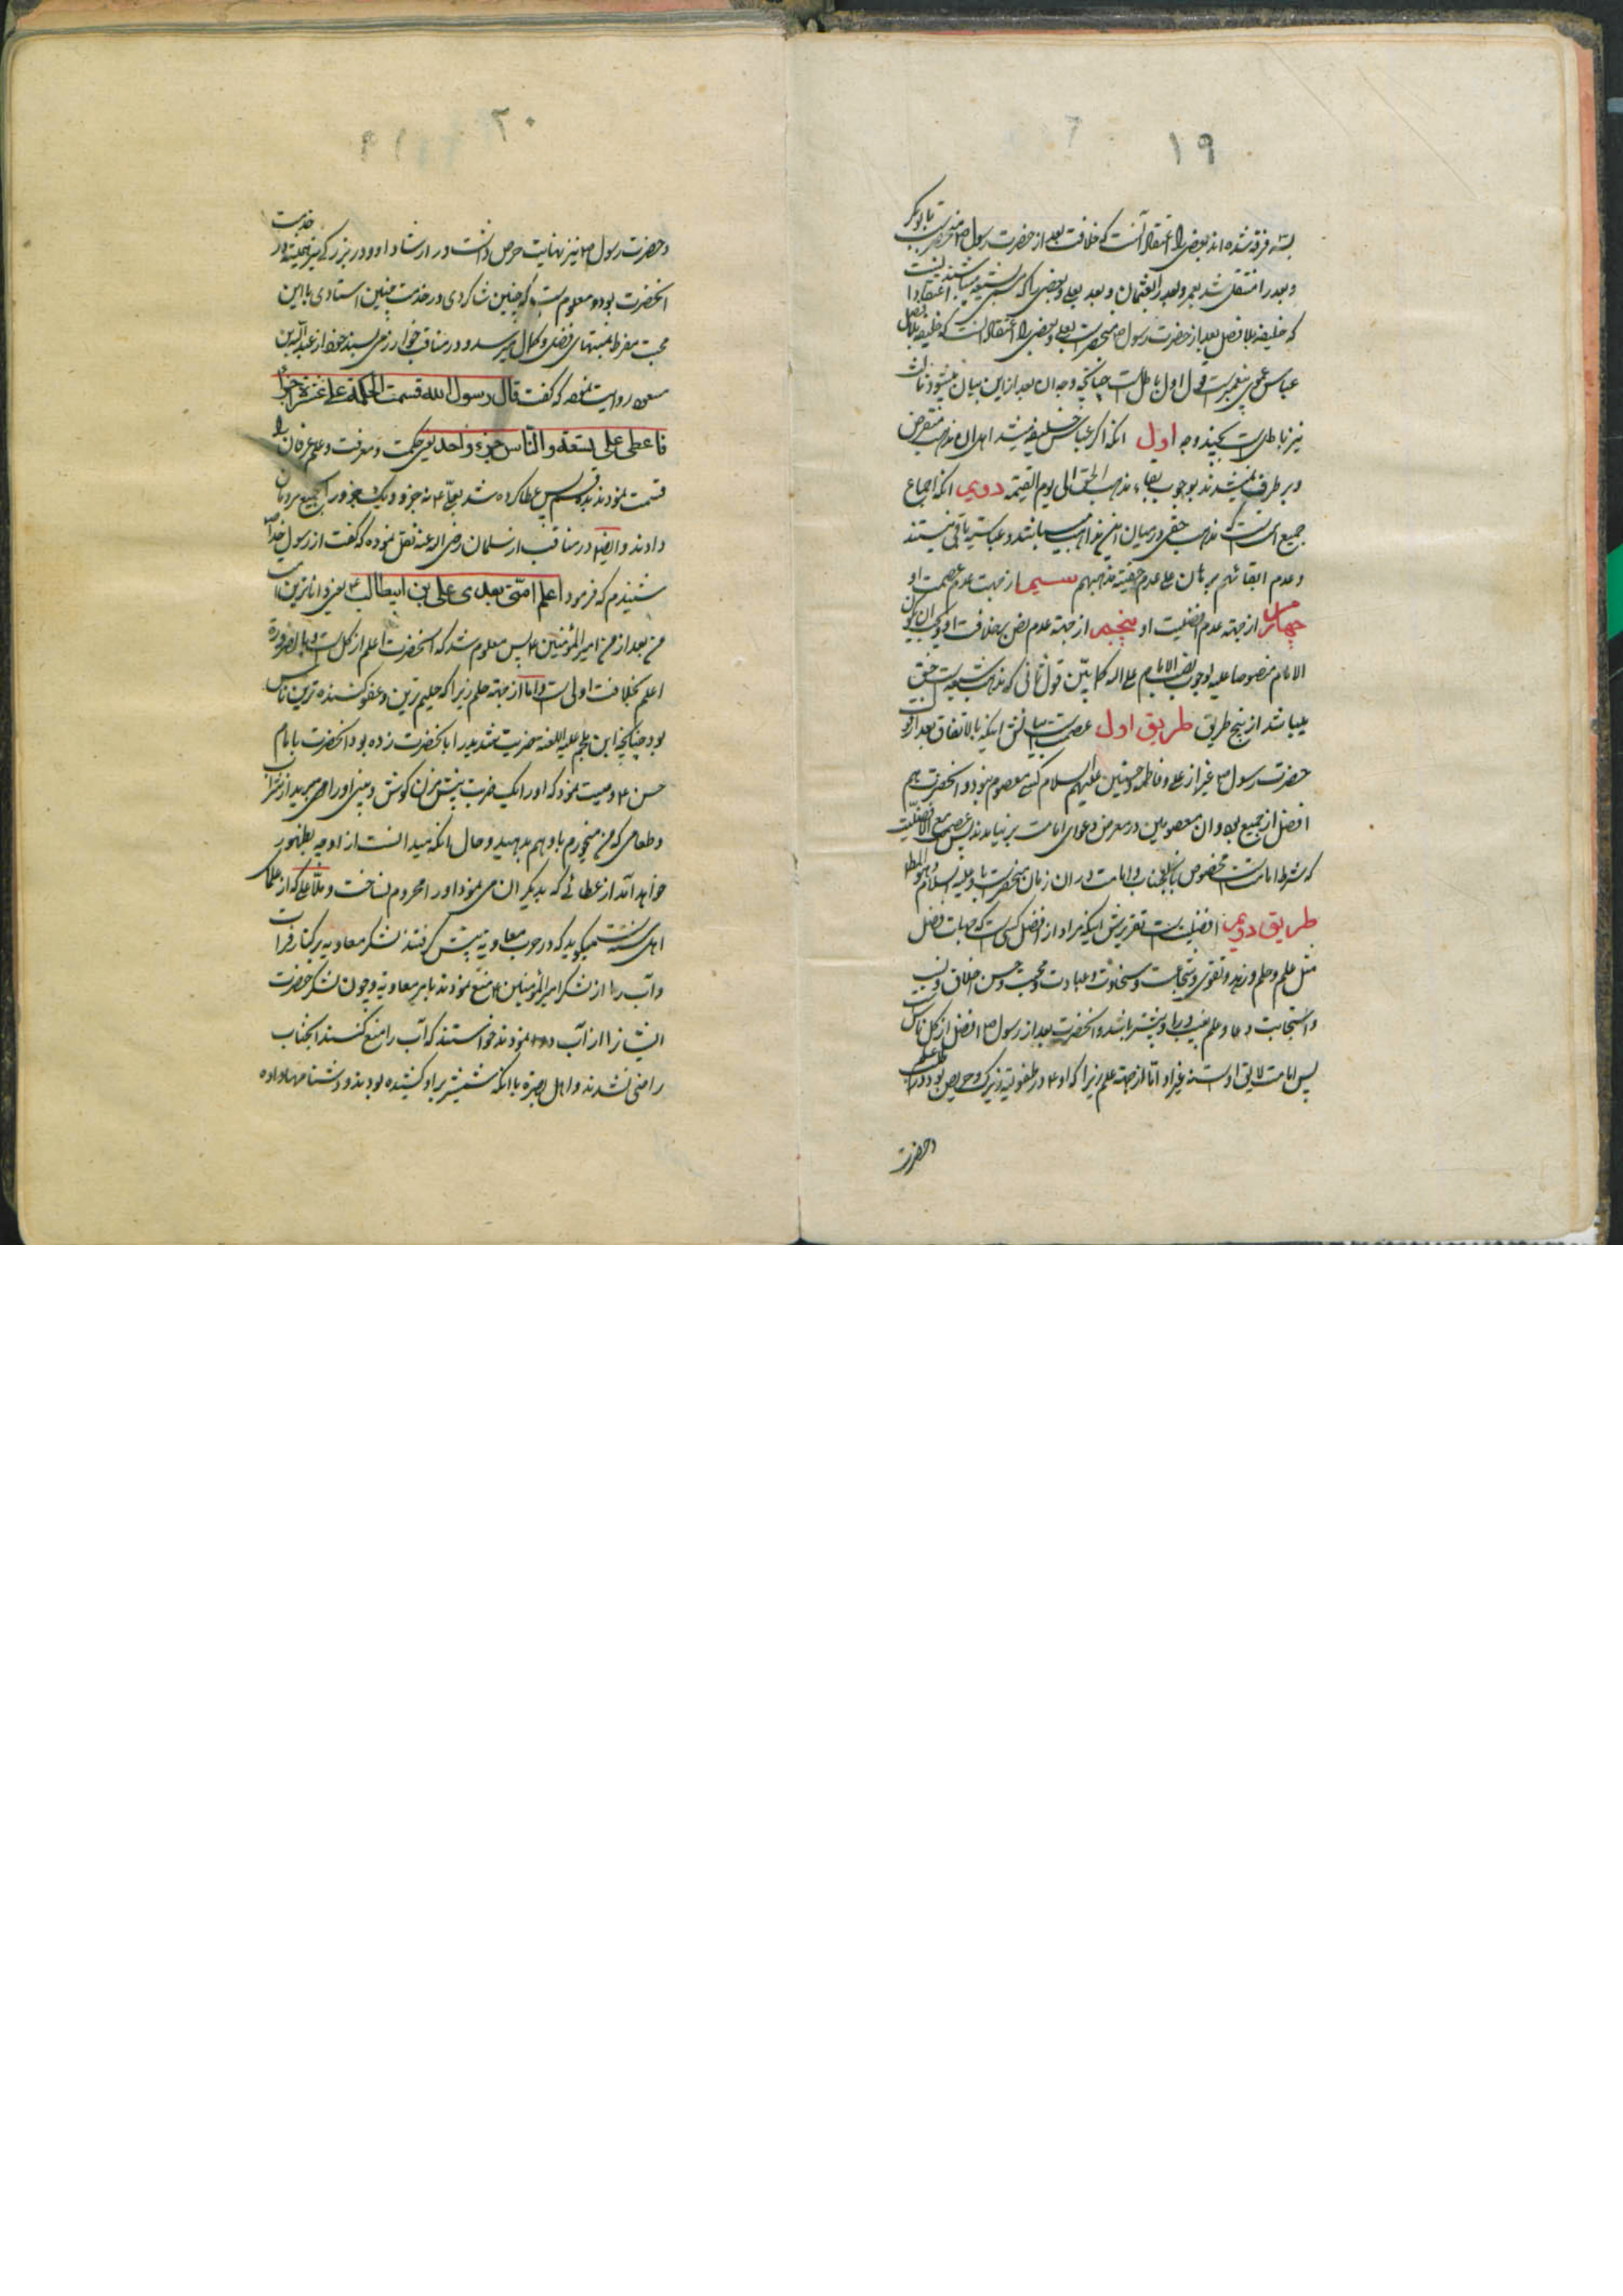 ۱۹
بسه فرقه شده‌اند بعضی را اعتقاد آنست که خلافت بعد از حضرت رسول ص
و بعد را منتقل شد بعمر و بعد بعثمان و بعد بعلی و بعضی را که شیعه میباشند اعتقاد
که خلیفه بلافصل بعد از حضرت رسول ص حضرت علی و بعضی را اعتقاد آنست که خلیفه بلافصل
عباس عموی پیغمبر است قول اول باطل است چنانچه وجه آن بعد از این بیان میشود ثالث
نیز باطل است بچند وجه اول انکه اگر عباس خلیفه میشد اهل آن مذهب منقرض
و بر طرف نمیشدند بوجوب بقاء مذهب الحق الی یوم القیمه دویم انکه اجماع
جمیع است که مذهب حقی در میان این مذاهب میباشد و عباسیه باقی نیستند
و عدم ابقائهم برهان علی عدم حقیة مذهبهم سیم از جهت عدم عصمت او
چهارم از جهة عدم افضلیت او پنجم از جهة عدم نص بر خلافت او و یجب ان یکون
الامام منصوصا علیه لوجوب نص الامام قول ثانی که مذهب شیعه است حق
میباشد از پنج طریق طریق اول عصمت بیانش اینکه بالاتفاق بعد از
حضرت رسول ص غیر از علی و فاطمه و حسنین علیهم السلام کسی معصوم نبود و انحضرت هم
افضل از جمیع بود و ان معصومین در معرض دعوای امامت بر نیامدند پس عصمت مع الافضلیت
که شرط امامت است مخصوص بانجناب و امامت در ان زمان منحصر باو علیه السلام و هو المطلوب
طریق دویم افضلیت است تقریرش اینکه مراد از افضل کسی است که جهات فضل
مثل علم و حلم و زهد و تقوی و شجاعت و سخاوت و عبادت و محبت و حسن اخلاق و نسب
و استجابت دعا و علم غیب در او بیشتر باشد و انحضرت بعد از رسول ص افضل از کل ناس
پس امامت لایق اوست نه غیر او اما از جهة علم زیرا که او ع در طفولیت زیرک و حریص بود
و حضرت
۲۰
و حضرت رسول ص نیز نهایت حرص داشت در ارشاد او و در بزرگی نیز همیشه در خدمت
انحضرت بود و معلوم است که چنین شاگردی در خدمت چنین استادی با این
محبت مفرط بمنتهای فضل و کمال میرسد و در مناقب خوارزمی بسند خود از عبدالله بن
مسعود روایت نموده که گفت قال رسول الله قسمت الحکمة علی عشرة اجزاء
فاعطی علی تسعة و الناس جزء واحد یعنی حکمت و معرفت و علم و عرفان را
قسمت نمودند بده قسم پس عطا کرده شد بعلی ع نه جزو و یک جزو را بجمیع مردمان
دادند و ایضا در مناقب از سلمان رضی الله عنه نقل نموده که گفت از رسول خدا ص
شنیدم که فرمود اعلم امتی بعدی علی بن ابیطالب ع یعنی داناترین
من بعد از من امیرالمؤمنین ع پس معلوم شد که انحضرت اعلم از کل است و بالضرورة
اعلم بخلافت اولی است و اما از جهة حلم زیرا که حلیم ترین و عفو کننده ترین ناس
بود چنانکه ابن ملجم علیه اللعنه ضربت شدید را بانحضرت زده بود انحضرت بامام
حسن ع وصیت نمود که او را یک ضربت بیش مزن و گوش و بینی او را مبرید از شراب
و طعامی که من میخورم باو هم بدهید و حال انکه میدانست از او چه بظهور
خواهد آمد از عطائی که بدیگران می نمود او را محروم نساخت و ملا علی که از علمای
اهل سنت میگوید که در حرب معاویه پیش گرفتند لشکر معاویه بر کنار فرات
و آب را از لشکر امیرالمؤمنین ع منع نمودند بامر معاویه و چون لشکر حضرت
ایشان را از آب دور نمودند خواستند که آب را منع کنند انجناب
راضی نشدند و اهل بصره با انکه شمشیر بر او کشیده بودند و دشنامها داده